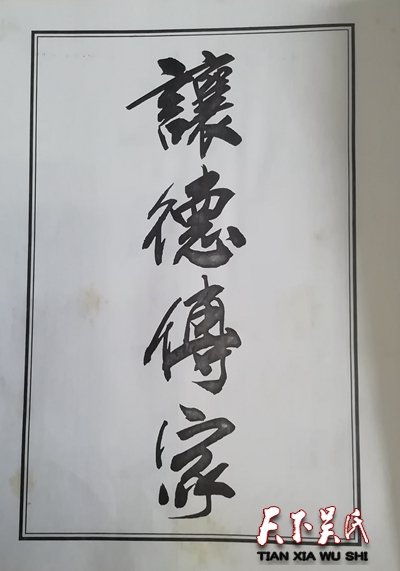 讓德傳家
天下吴氏
TIAN XIA WU SHI